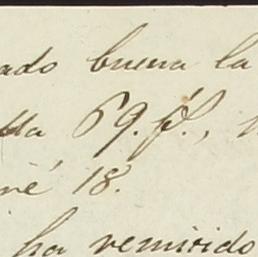 ado buena la
lla 69. f.,
né 18.
ha remitido